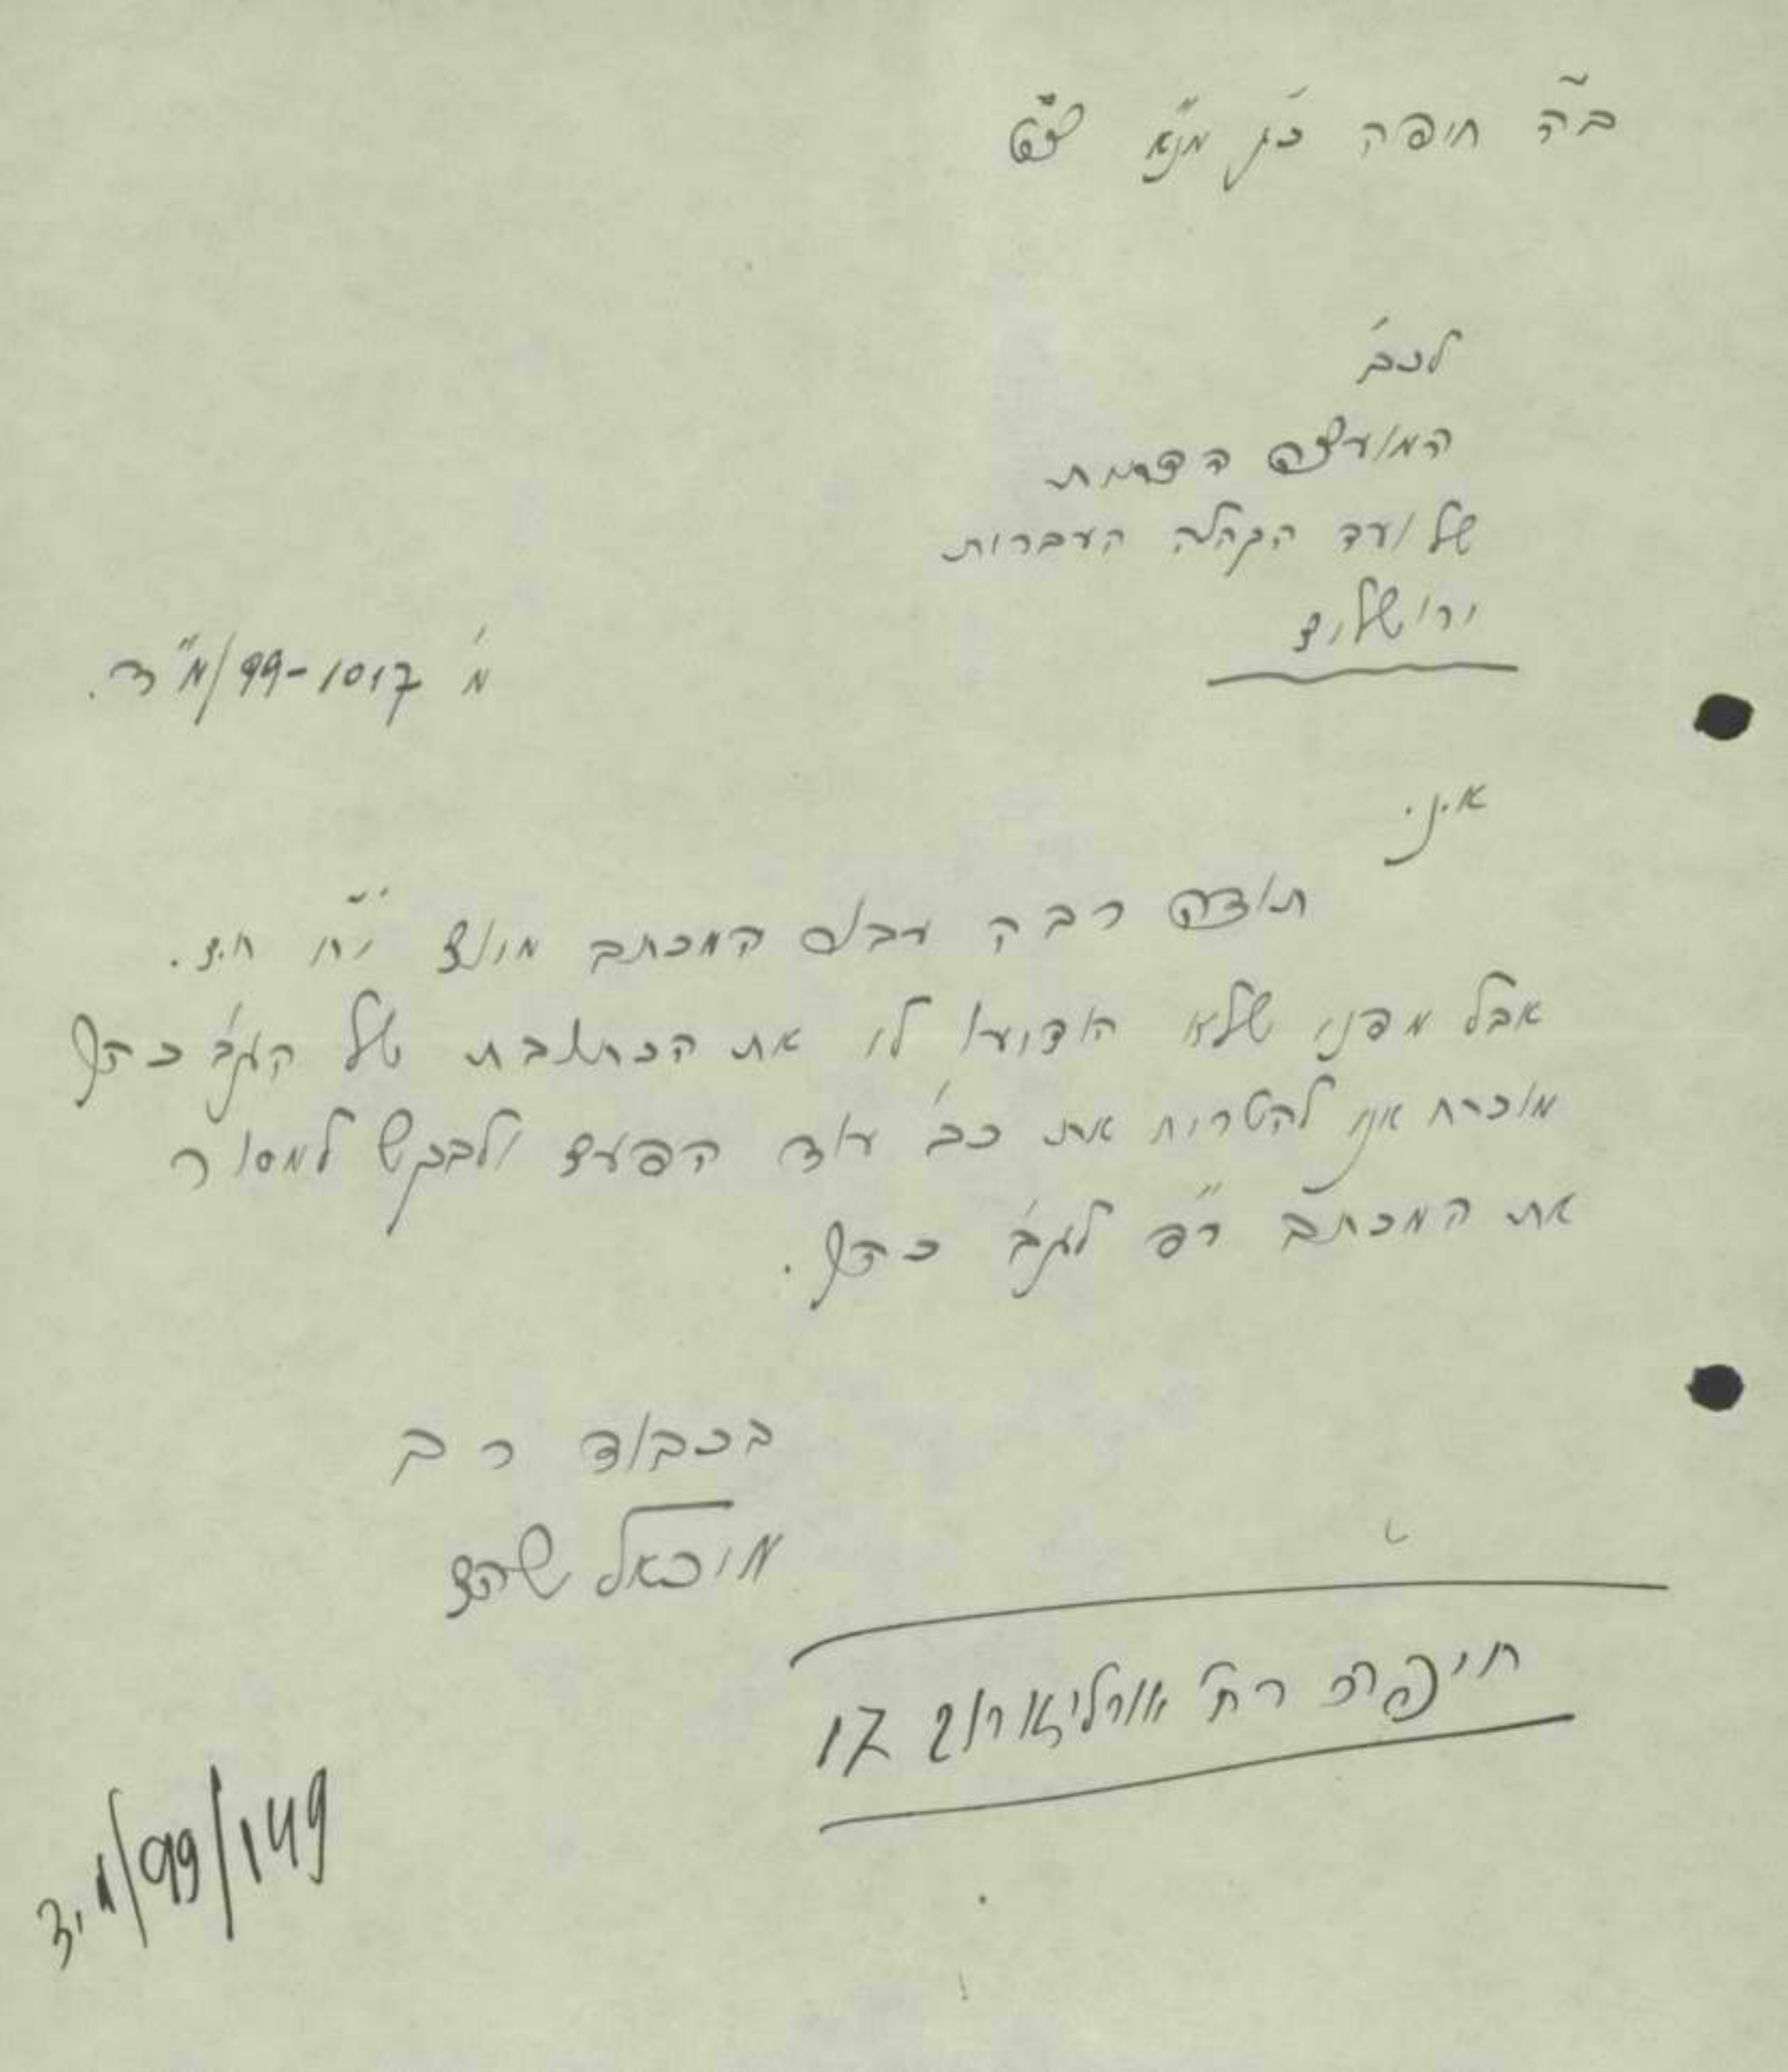 ב"ה חיפה כ"ג מנ"א
לכב'
המועצה הדתית
של ועד הקהלה העברית
ירושלים
מ' 99-1017/מ"ד.
א.נ.
תודה רבה המכתב מיום י"ח ח.ז.
אבל מפני שלא הודיעו לי את הכתובת של הגב' כהן
מוכרח אני להטריח את כב' עוד הפעם ולבקש למסור
את המכתב לגב' כהן.
בכבוד רב
מיכאל שהם
חיפה רח' ארלוזורוב 17
149/99/מ.ד